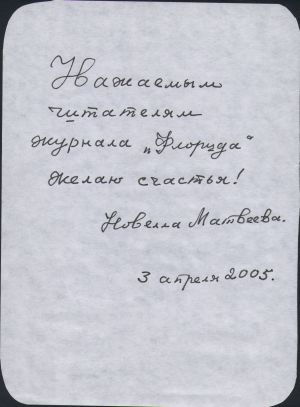 Уважаемым
читателям
журнала „Флорида“
желаю счастья!
Новелла Матвеева.
3 апреля 2005.